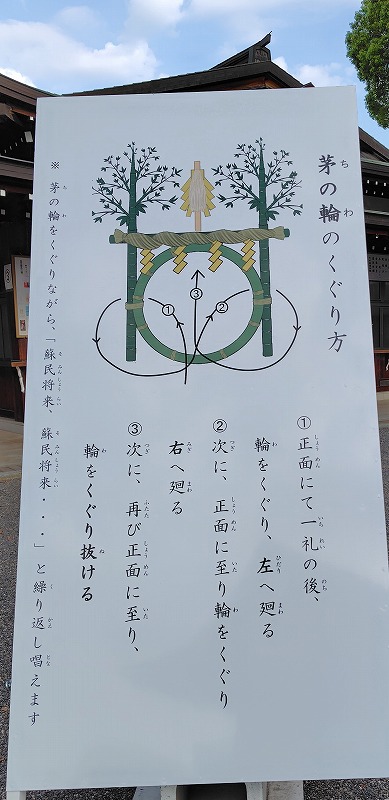 茅の輪のくぐり方
①正面にて一礼の後、
輪をくぐり、左へ廻る
②次に、正面に至り輪をくぐり
右へ廻る
③次に、再び正面に至り、
輪をくぐり抜ける
※ 茅の輪をくぐりながら、「蘇民将来、蘇民将来・・・」と繰り返し唱えます
①
③
②